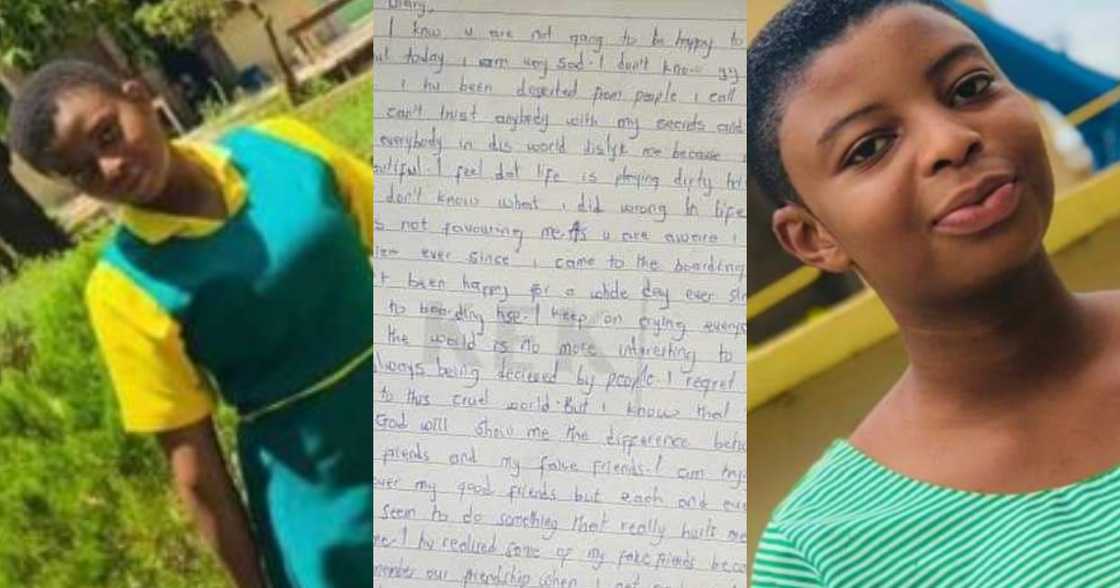 Diary,
I know u are not gong to be happy to
ut today i am very sad. I don't know
i hv been deserted from people i call
can't trust anybody with my secrets and
everybody in dis world dislyk me because
utiful. I feel dat life is playing dirty tri
don't know what i did wrong in life
s not favouring me. As u are aware i
ever since i came to the boarding
t been happy for a whole day ever sin
to boarding hse. I keep on crying everys
the world is no more interesting to
always being decieved by people. I regret
to this cruel world. But i know that
God will show me the difference betw
friends and my fake friends. I am try
over my good friends but each and eve
seem to do something that really hurts me
me. I hv realised some of my fake friends beca
member our friendship when I